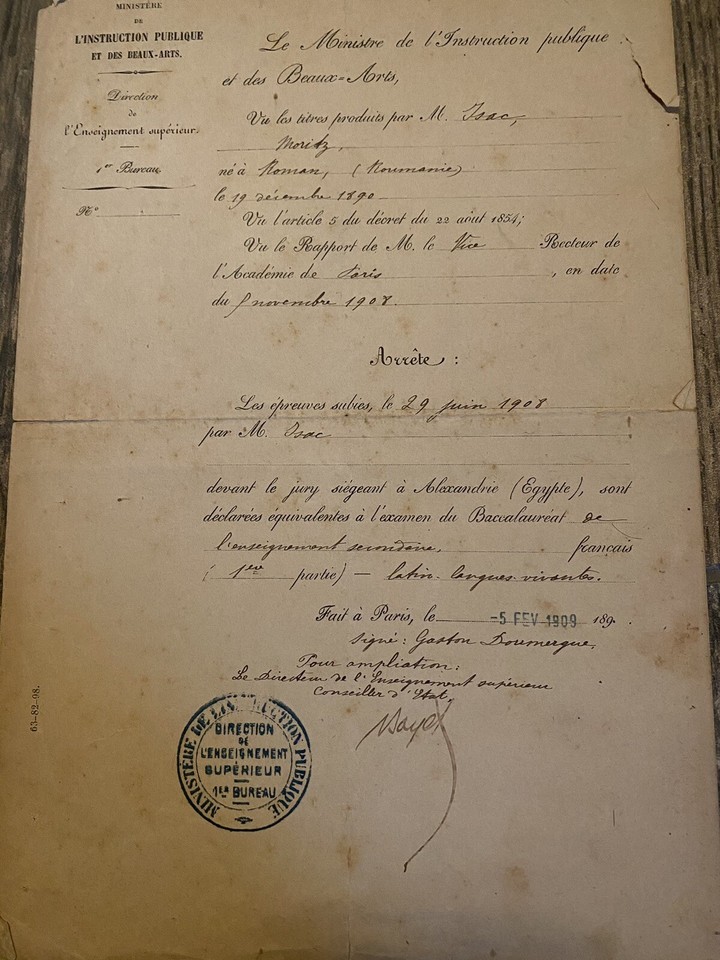 MINISTÈRE
DE
L'INSTRUCTION PUBLIQUE
ET DES BEAUX-ARTS.
Direction
de
l'Enseignement supérieur.
1er Bureau
N°
Le Ministre de l'Instruction publique
et des Beaux-Arts,
Vu les titres produits par M. Isac,
Moritz,
né à Roman, (Roumanie)
le 19 décembre 1890
Vu l'article 5 du décret du 22 août 1854;
Vu le Rapport de M. le Vice Recteur de
l'Académie de Paris, en date
du novembre 1908.
Arrête :
Les épreuves subies, le 29 juin 1908
par M. Isac
devant le jury siégeant à Alexandrie (Egypte), sont
déclarées équivalentes à l'examen du Baccalauréat de
l'enseignement secondaire, français
(1ère partie) — latin-langues vivantes.
Fait à Paris, le -5 FEV 1909 189
Signé : Gaston Doumergue,
Pour ampliation :
Le Directeur de l'Enseignement supérieur
Conseiller d'Etat,
Bayet
63-82-98.
MINISTÈRE DE L'INSTRUCTION PUBLIQUE
DIRECTION
DE
L'ENSEIGNEMENT
SUPÉRIEUR
1ER BUREAU